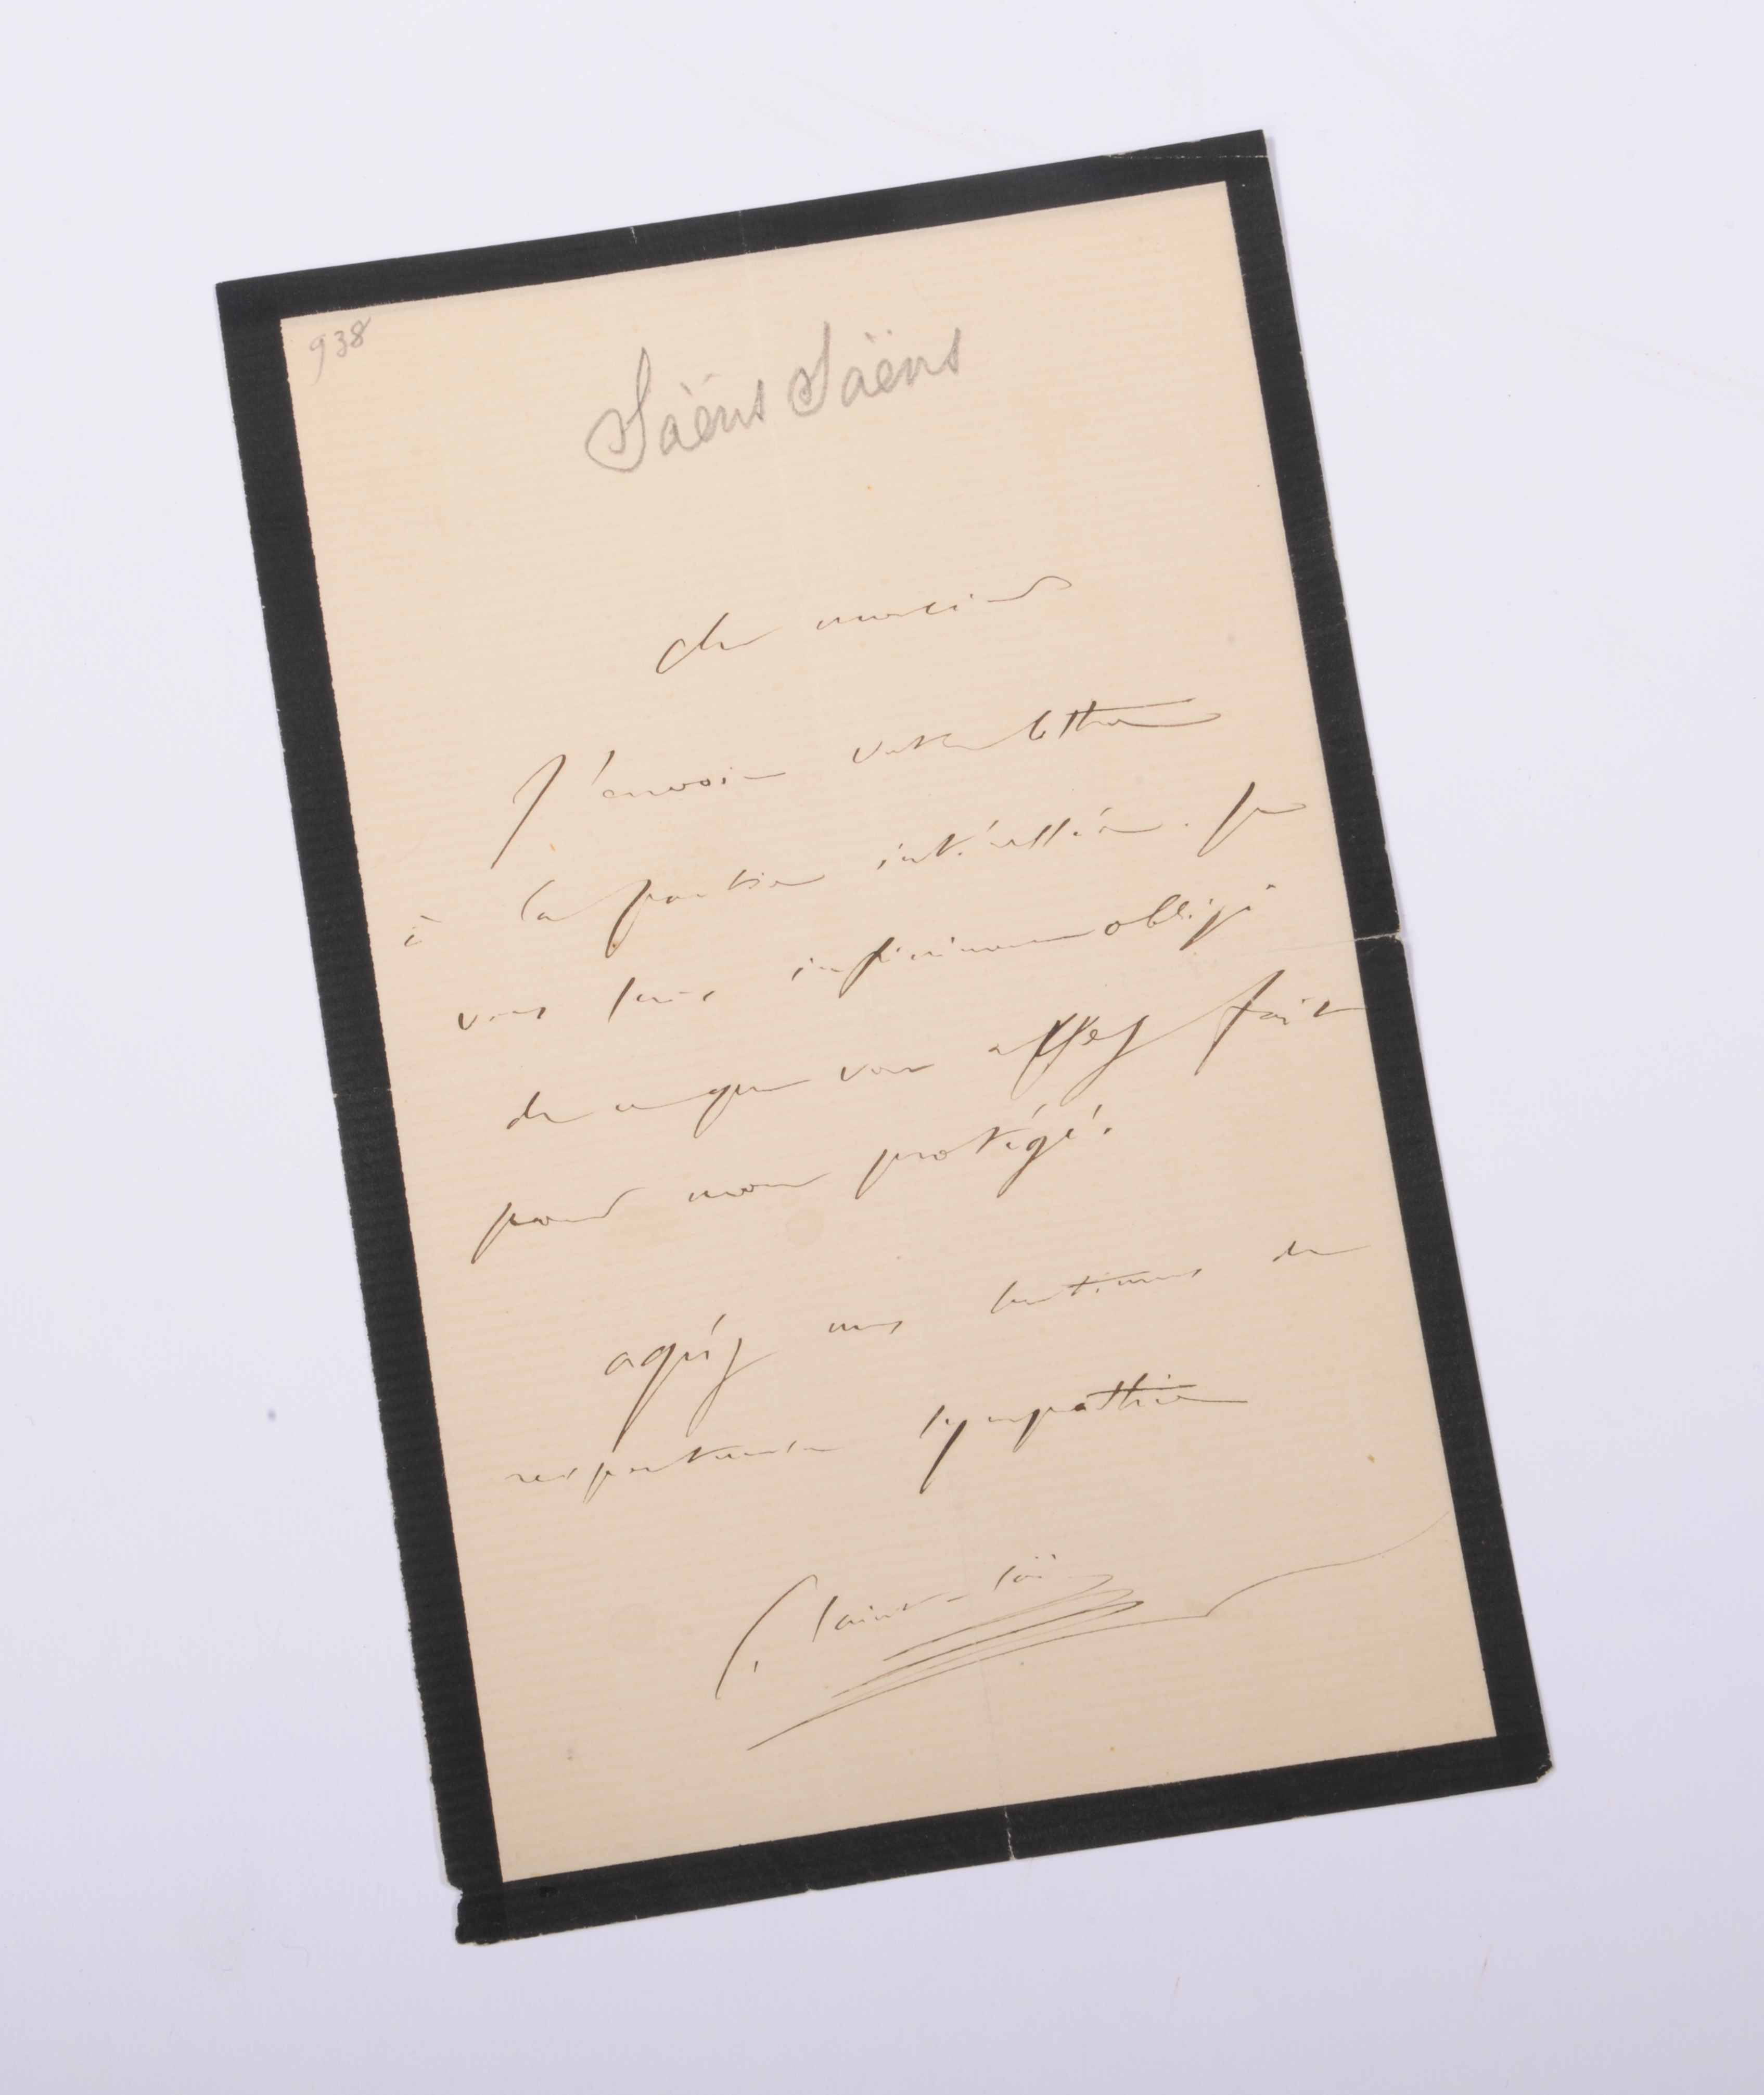 938
Säëns Säëns
cher monsieur
J'envoie votre lettre
à la partie intéressée. Je
vous suis infiniment obligé
de ce que vous avez fait
pour mon protégé.
agréez mes sentiments de
respectueuse sympathie
C. Saint-Saëns